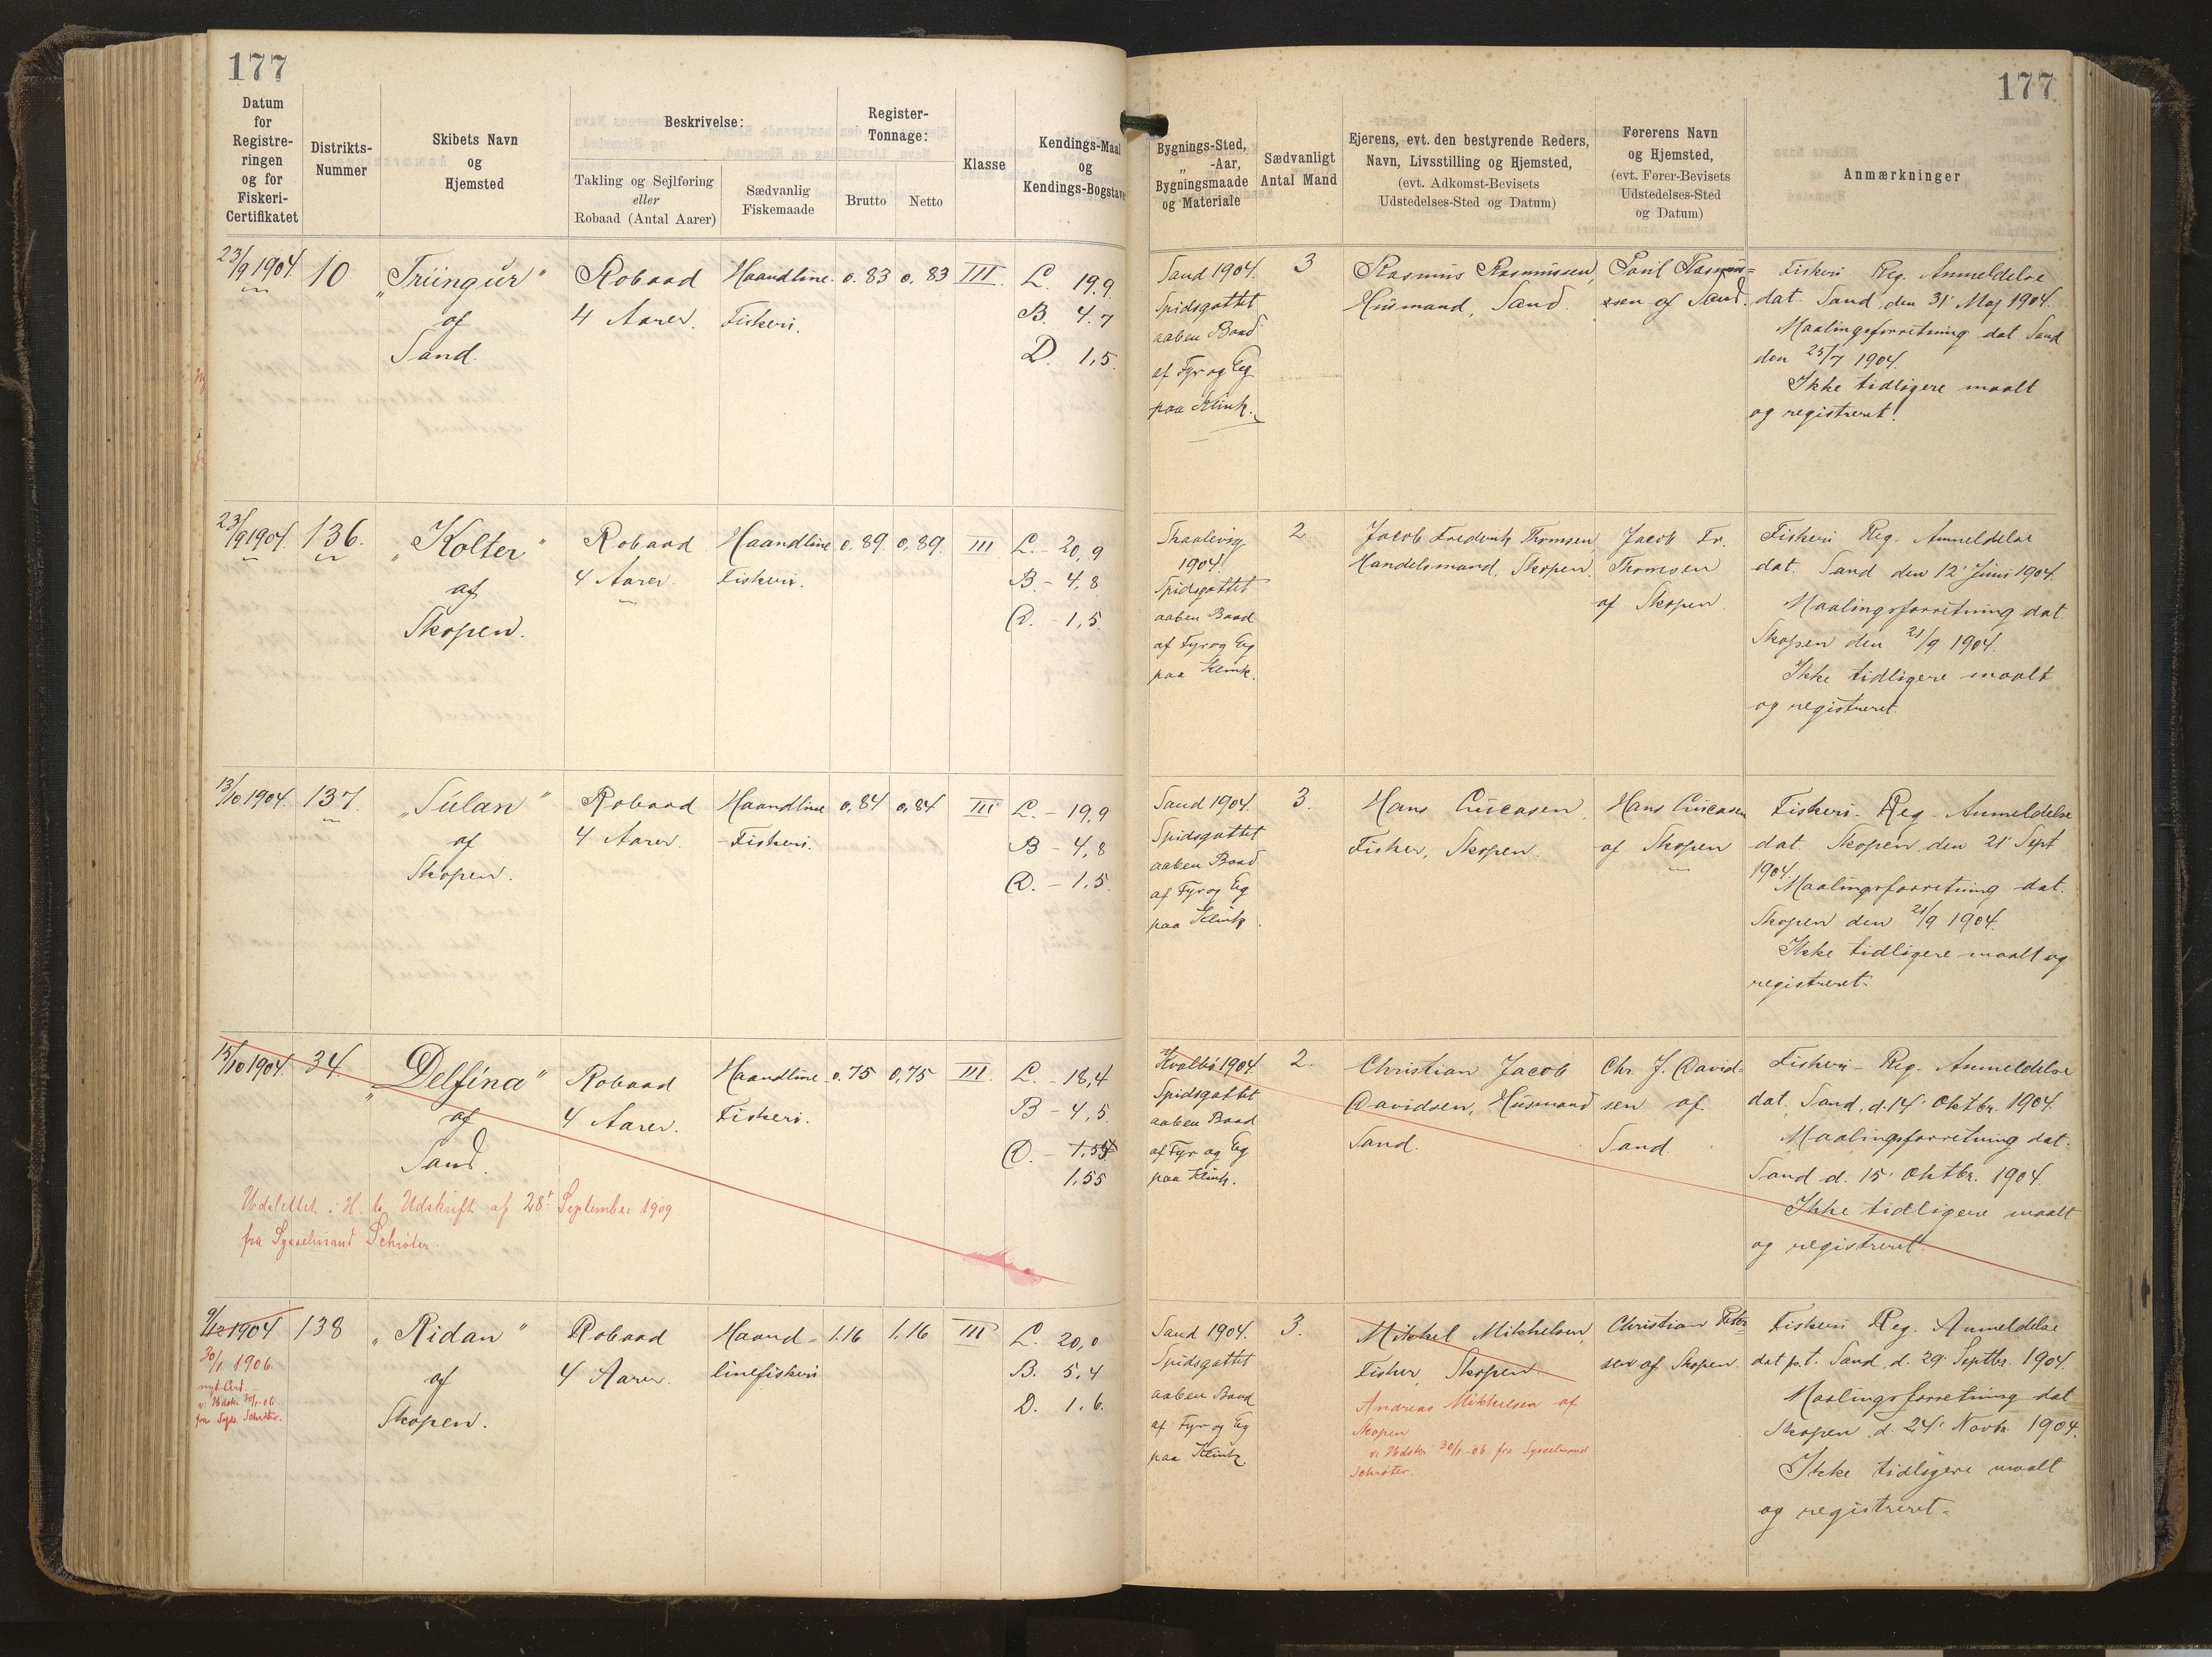 177
177
Datum
for
Registre-
ringen
og for
Fiskeri-
Certifikatet
Distrikts-
Nummer
Skibets Navn
og
Hjemsted
Beskrivelse:
Takling og Sejlføring
eller
Robaad (Antal Aarer)
Sædvanlig
Fiskemaade
Register-
Tonnage:
Brutto
Netto
Klasse
Kendings-Maal
og
Kendings-Bogstaver
Bygnings-Sted,
„ -Aar,
Bygningsmaade
og Materiale
Sædvanligt
Antal Mand
Ejerens, evt. den bestyrende Reders,
Navn, Livsstilling og Hjemsted,
(evt. Adkomst-Bevisets
Udstedelses-Sted og Datum)
Førerens Navn
og Hjemsted,
(evt. Fører-Bevisets
Udstedelses-Sted
og Datum)
Anmærkninger
23/9 1904.
10
„Trüngur"
af
Sand.
Robaad
4 Aarer.
Haandline-
Fiskeri.
0.83
0.83
III.
L. 19.9
B. 4.7
D. 1,5.
Sand 1904.
Spidsgattet
aaben Baad
af Fyr og Eg
paa Klink.
3
Rasmus Rasmussen,
Husmand, Sand.
Poul Rasmus=
sen af Sand.
Fiskeri Reg. Anmeldelse
dat. Sand den 31' Maj 1904.
Maalingsforretning dat Sand
den 25/7 1904.
Ikke tidligere maalt
og registreret.
23/9 1904.
136.
„Kolter"
af
Skopen.
Robaad
4 Aarer.
Haandline
Fiskeri.
0.89
0,89.
III
L. - 20,9
B - 4,8
D. - 1,5.
Thralevig
1904.
Spidsgattet
aaben Baad
af Fyr og Eg
paa Klink.
2
Jacob Frederik Thomsen
Handelsmand, Skopen.
Jacob Fr.
Thomsen
af Skopen.
Fiskeri Reg. Anmeldelse
dat. Sand den 12' Juni 1904.
Maalingsforretning dat.
Skopen den 21/9 1904.
Ikke tidligere maalt
og registreret.
13/10 1904.
137.
„Súlan"
af
Skopen.
Robaad
4 Aarer.
Haandline
-Fiskeri.
0,84
0,84
III
L. - 19,9
B - 4,8
D. - 1,5.
Sand 1904.
Spidsgattet
aaben Baad
af Fyr og Eg
paa Klink.
3.
Hans Lucasen,
Fisker, Skopen.
Hans Lucasen
af Skopen
Fiskeri- Reg - Anmeldelse
dat. Skopen, den 21' Sept
1904.
Maalingsforretning dat.
Skopen den 21/9 1904.
Ikke tidligere maalt og
registreret.
15/10 1904.
34.
„Delfina"
af
Sand.
Robaad
4 Aarer.
Haandline
Fiskeri.
0.75
0,75
III.
L. - 18,4
B - 4,5
D. - 1,55
1,55
Kvalbø 1904.
Spidsgattet
aaben Baad
af Fyr og Eg
paa Klink.
2.
Christian Jacob
Davidsen, Husmand
Sand.
Chr. J. David=
sen af
Sand.
Fiskeri- Reg. Anmeldelse
dat. Sand, d. 14' Oktbr. 1904.
Maalingsforretning dat.
Sand d. 15' Oktbr. 1904.
Ikke tidligere maalt
og registreret.
Udslettet i H. t. Udskrift af 28' September 1909
fra Sysselmand Schrøter.
9/12 1904
30/1 1906.
nyt Cert.
v. Udskr. 30/1-06.
fra Syss. Schrøter.
138
„Ridan"
af
Skopen.
Robaad
4 Aarer.
Haand-
linefiskeri
1.16
1,16
III
L. 20,0
B. 5,4
D. 1.6.
Sand 1904.
Spidsgattet
aaben Baad
af Fyr og Eg
paa Klink
3.
Mikkel Mikkelsen,
Fisker, Skopen.
Andreas Mikkelsen af
Skopen
v. Udskr. 30/1-06 fra Sysselmand
Schrøter.
Christian Peter=
sen af Skopen.
Fiskeri Reg. Anmeldelse
dat p.t. Sand, d. 29' Septbr. 1904.
Maalingsforretning dat
Skopen, d. 24' Novbr. 1904.
Ikke tidligere maalt
og registreret.